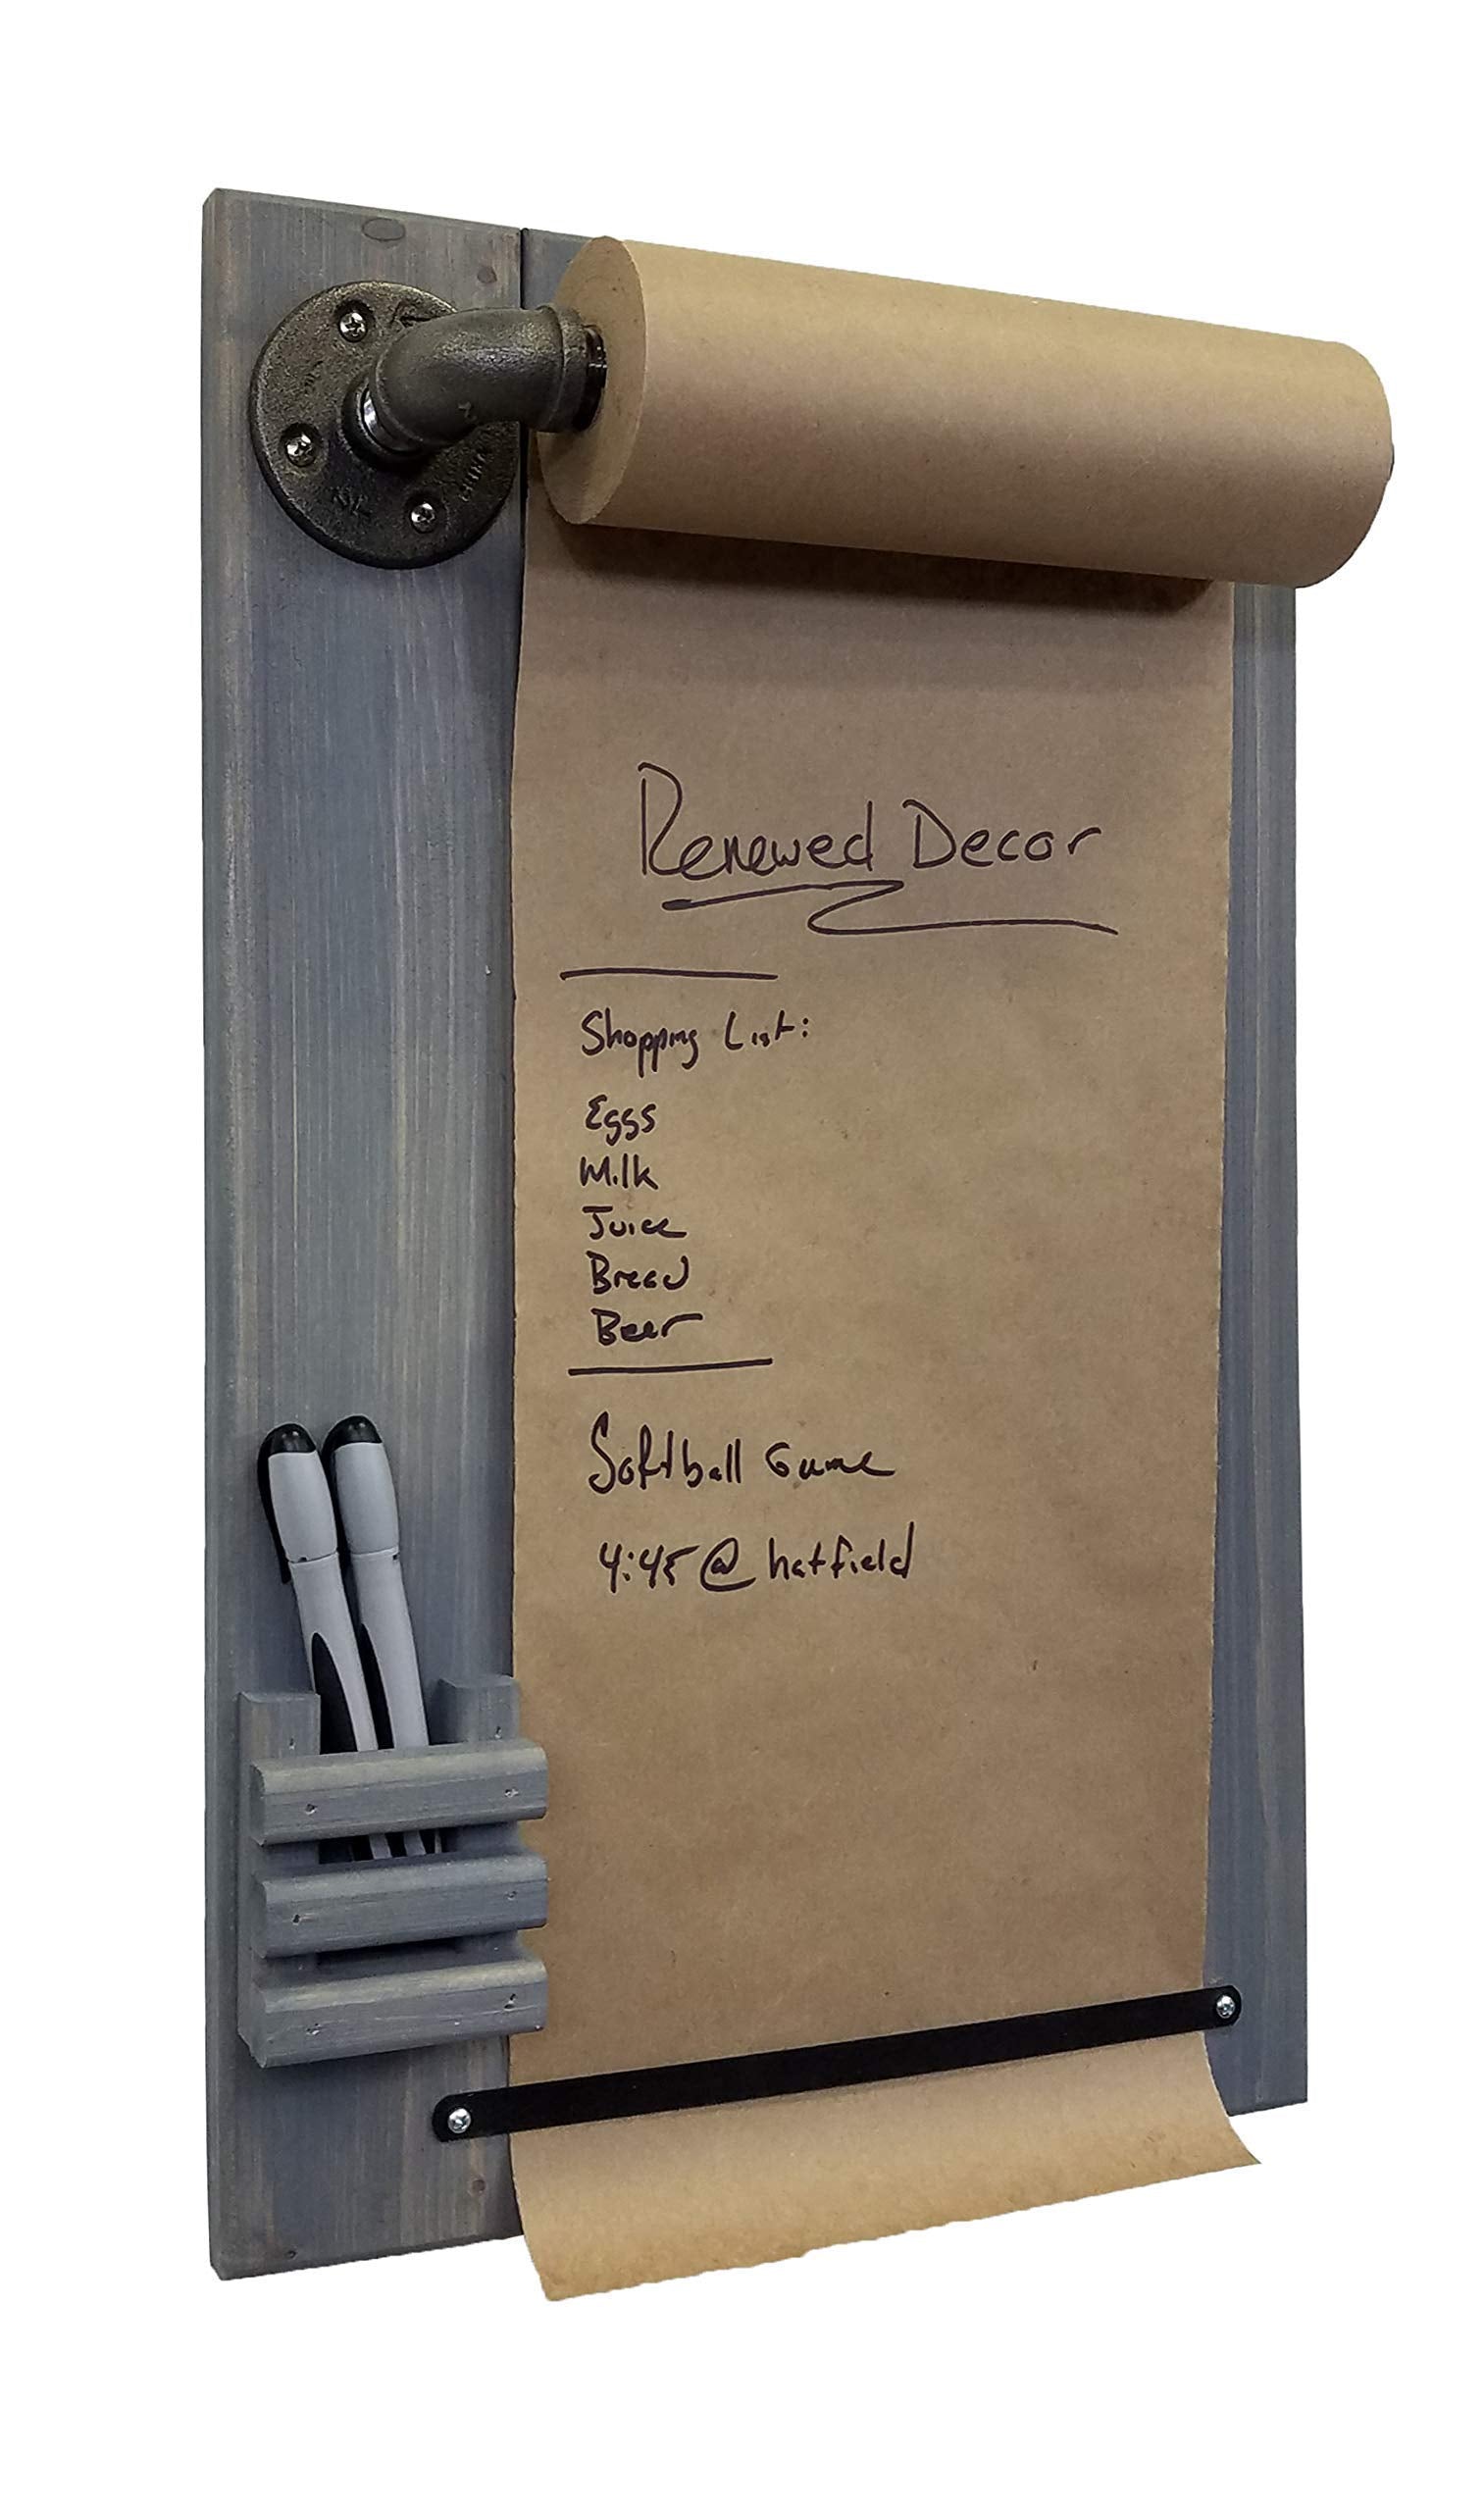 CHINA
Renewed Decor
Shopping List:
Eggs
Milk
Juice
Bread
Beer
Softball Game
4:45 @ hatfield